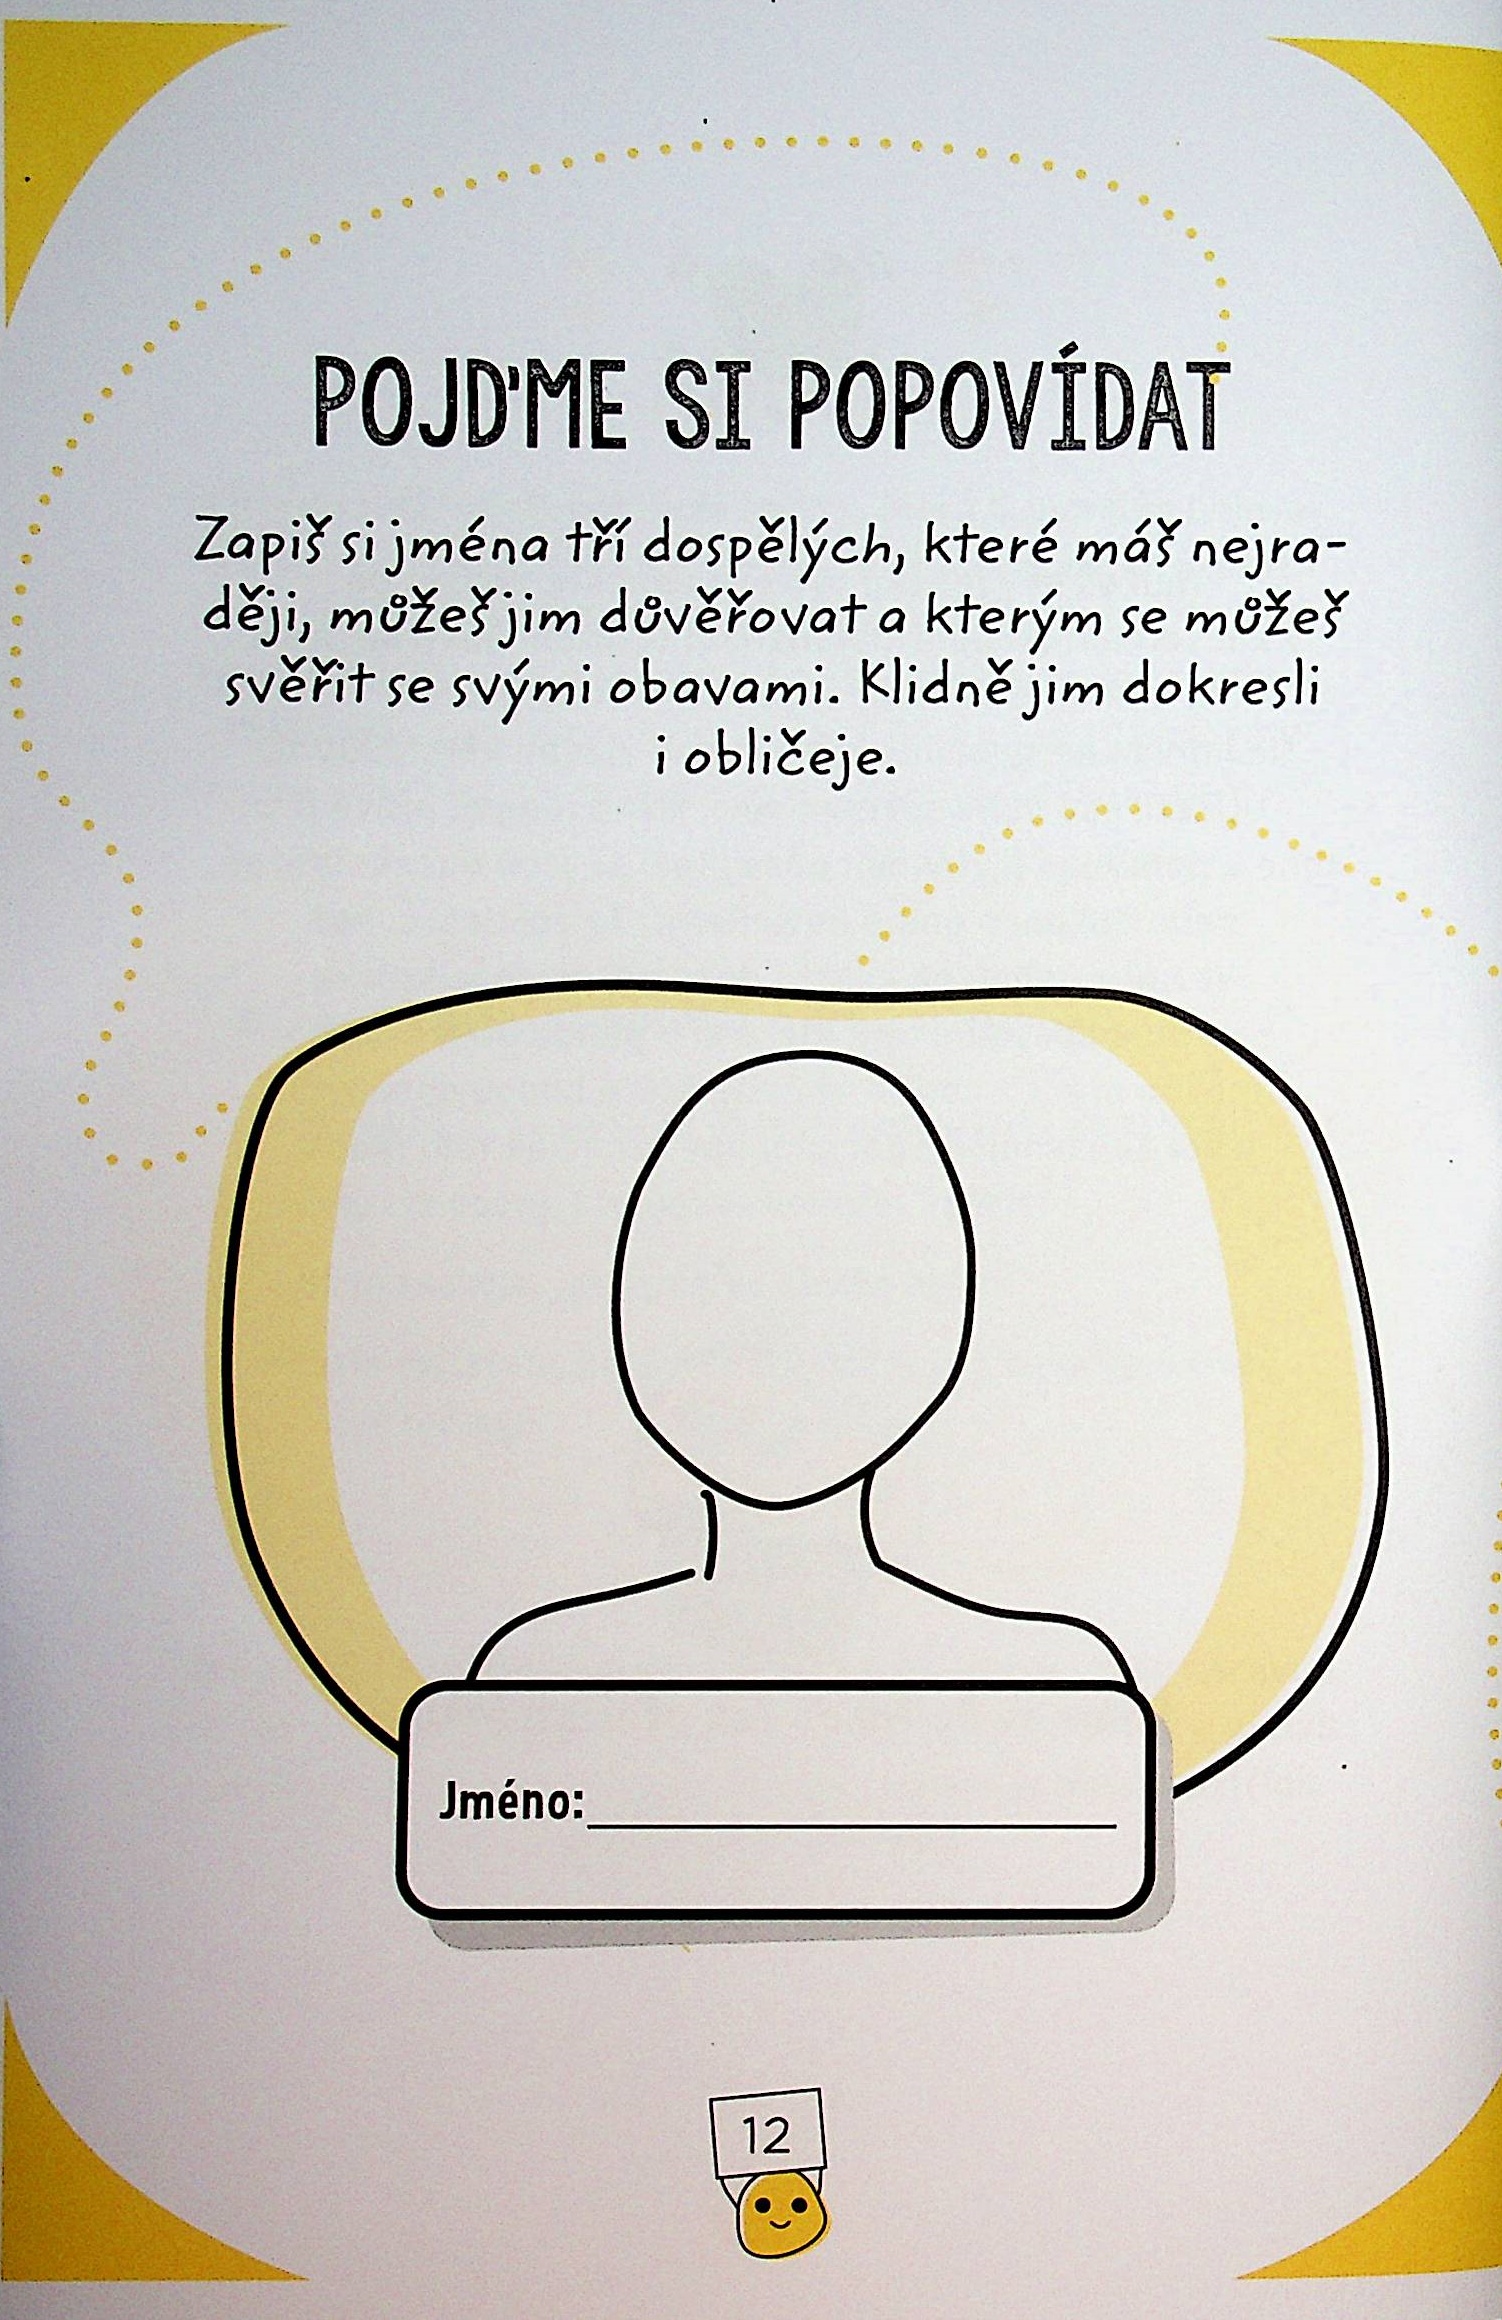 POJĎME SI POPOVÍDAT
Zapiš si jména tří dospělých, které máš nejra-
ději, můžeš jim důvěřovat a kterým se můžeš
svěřit se svými obavami. Klidně jim dokresli
i obličeje.
Jméno:
12